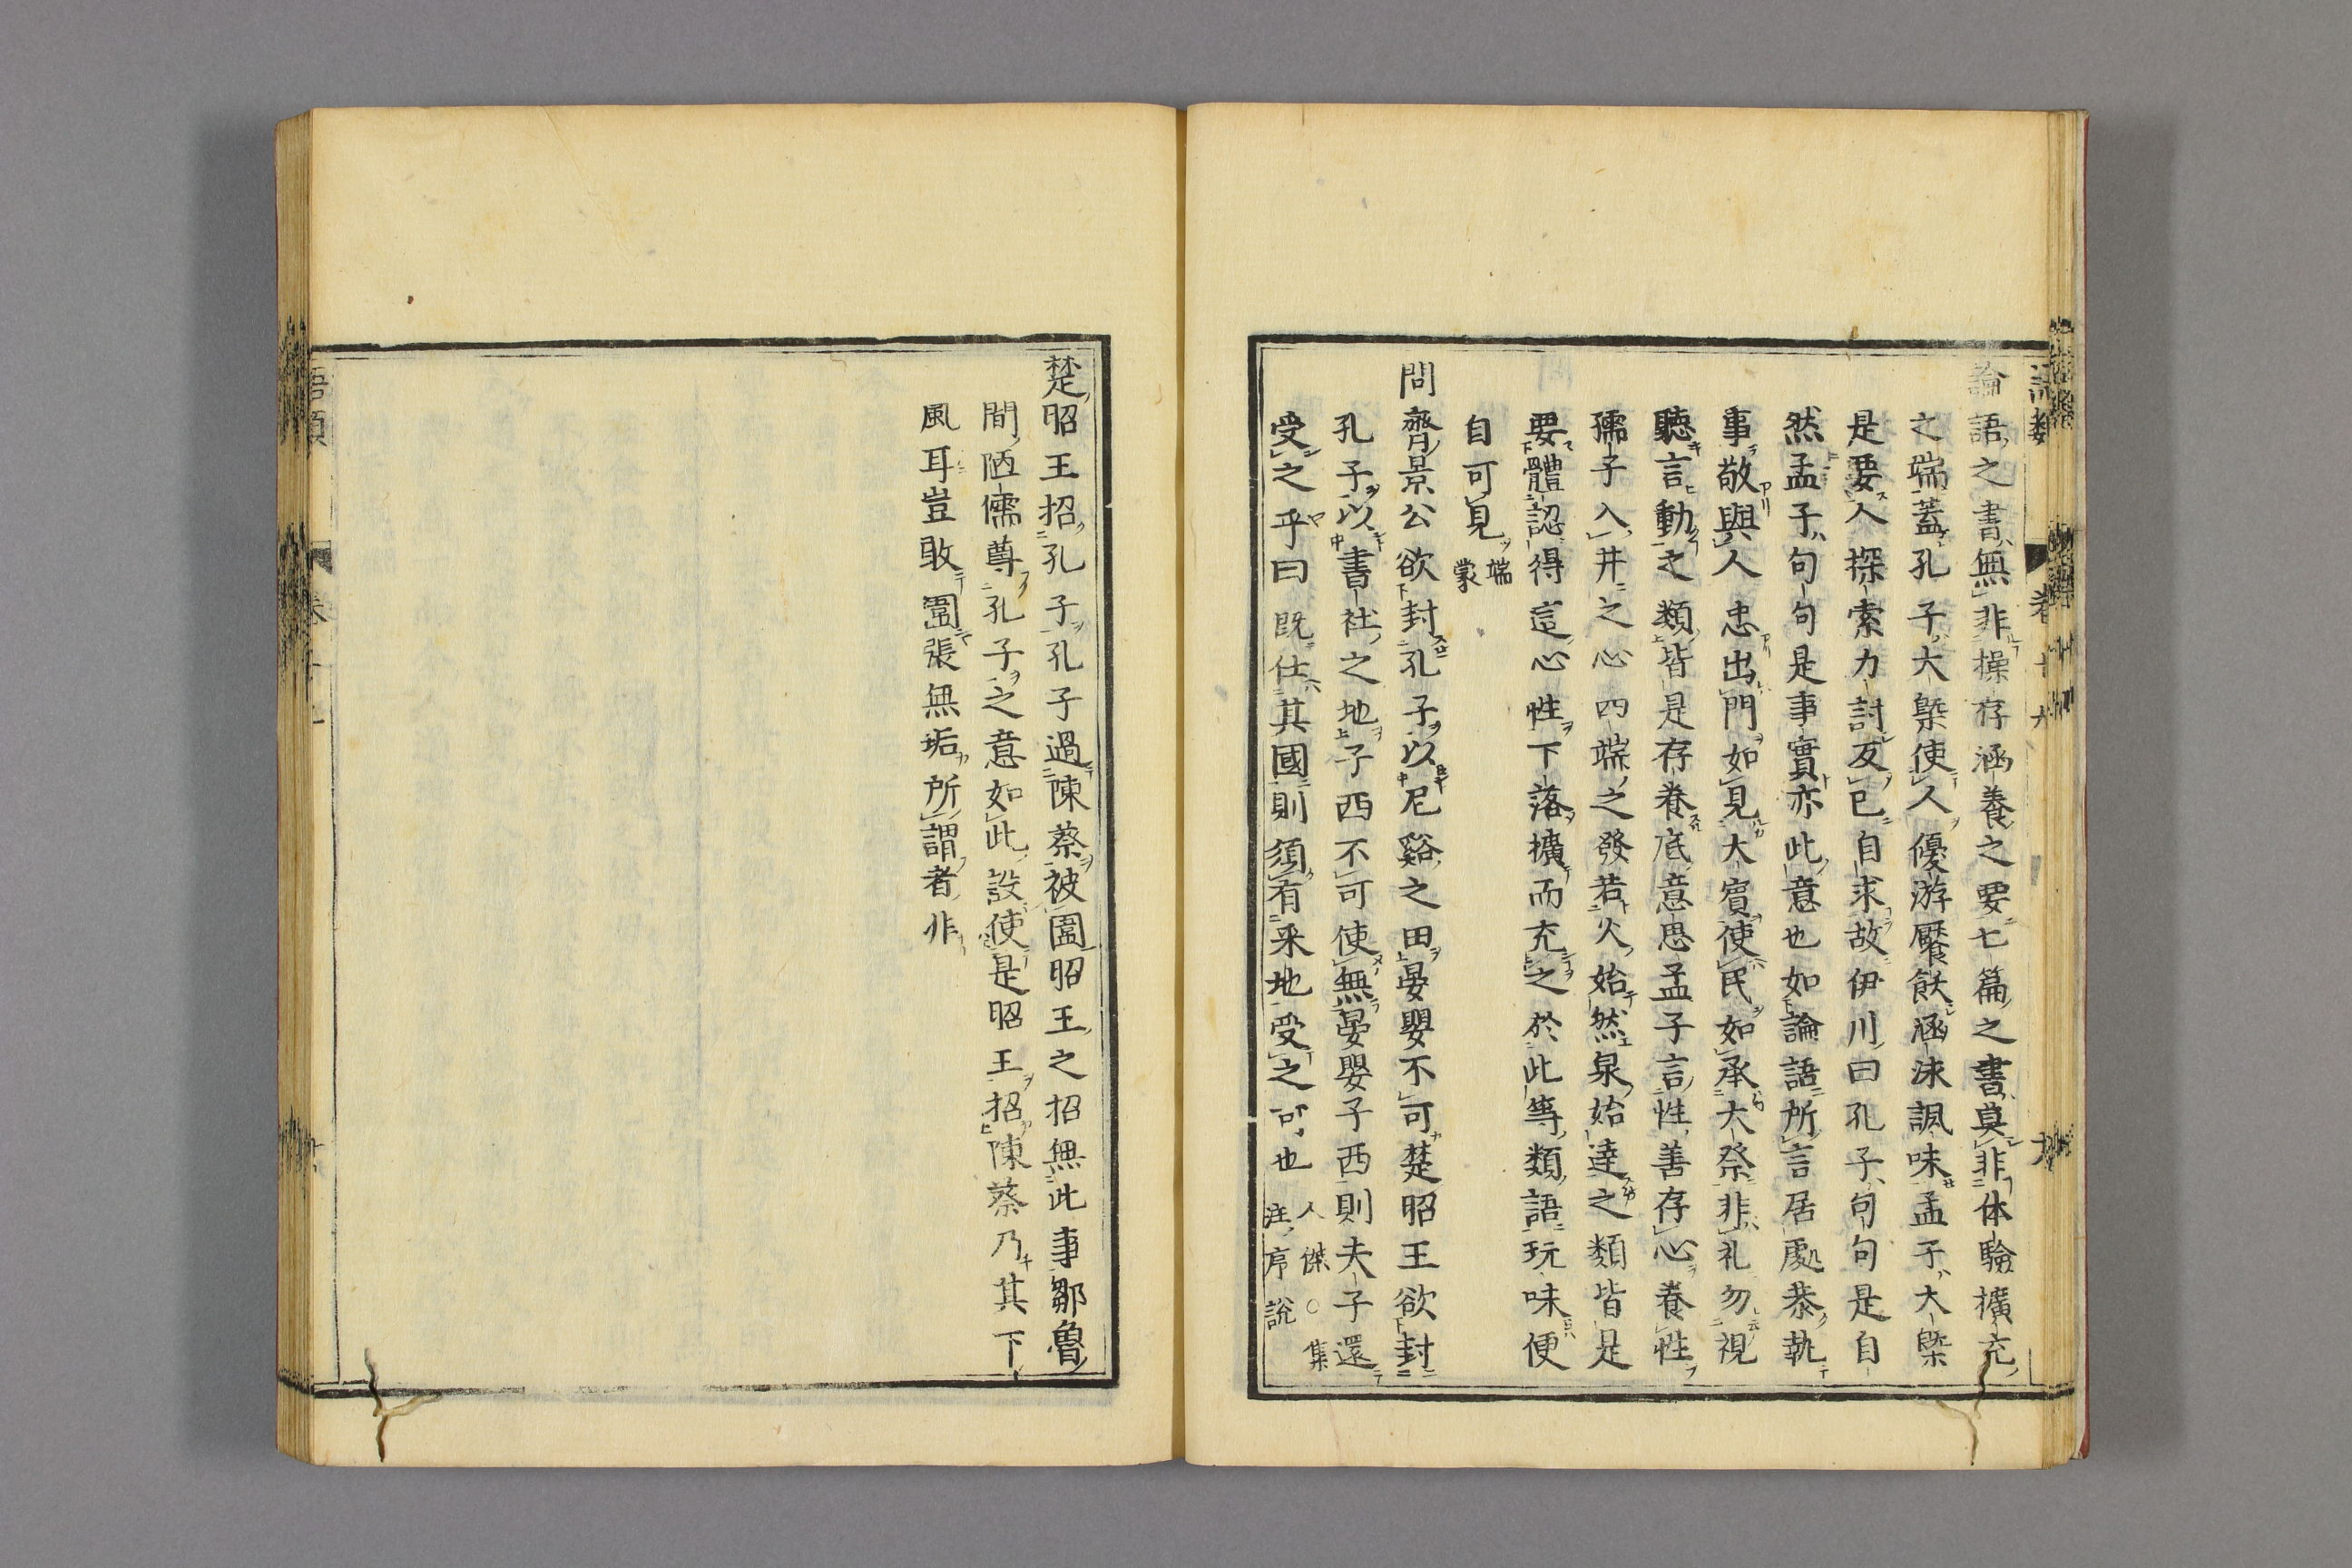 論語之書無非操存涵養之要七篇之書莫非体驗擴充
之端蓋孔子大槩使人優游饜飫涵泳諷味孟子大槩
是要人探索力討反已自求故伊川曰孔子句句是自
然孟子句句是事實亦此意也如論語所言居處恭執
事敬與人忠出門如見大賓使民如承大祭非礼勿視
聽言動之類皆是存養底意思孟子言性善存心養性
孺子入井之心四端之發若火始然泉始達之類皆是
要體認得這心性下落擴而充之於此等類語玩味便
自可見 端蒙
問齊景公欲封孔子以尼谿之田晏嬰不可楚昭王欲封
孔子以書社之地子西不可使無晏嬰子西則夫子還
受之乎曰既仕其國則須有采地受之可也 人傑○集註序說
楚昭王招孔子孔子過陳蔡被圍昭王之招無此事鄒魯
間陋儒尊孔子之意如此設使是昭王招陳蔡乃其下
風耳豈敢圍張無垢所謂者非